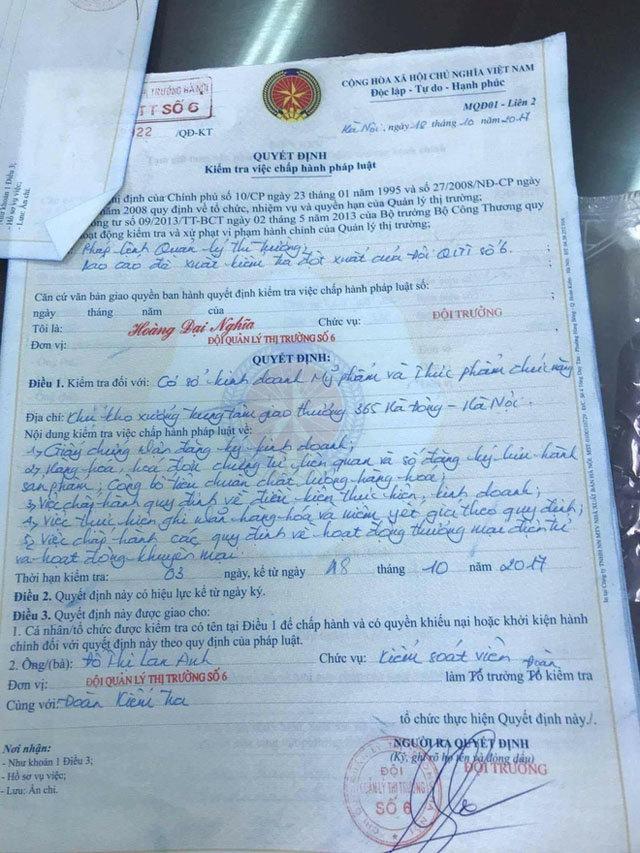 TRƯỜNG HÀ NỘI
TT SỐ 6
22 /QĐ-KT
CỘNG HÒA XÃ HỘI CHỦ NGHĨA VIỆT NAM
Độc lập - Tự do - Hạnh phúc
MQĐ01 - Liên 2
Hà Nội, ngày 18 tháng 10 năm 2017
QUYẾT ĐỊNH
Kiểm tra việc chấp hành pháp luật
định của Chính phủ số 10/CP ngày 23 tháng 01 năm 1995 và số 27/2008/NĐ-CP ngày
năm 2008 quy định về tổ chức, nhiệm vụ và quyền hạn của Quản lý thị trường;
tư số 09/2013/TT-BCT ngày 02 tháng 5 năm 2013 của Bộ trưởng Bộ Công Thương quy
hoạt động kiểm tra và xử phạt vi phạm hành chính của Quản lý thị trường;
Pháp lệnh Quản lý thị trường;
Báo cáo đề xuất kiểm tra đột xuất của Đội QLTT số 6.
Căn cứ văn bản giao quyền ban hành quyết định kiểm tra việc chấp hành pháp luật số:
ngày tháng năm của
Tôi là: Hoàng Đại Nghĩa Chức vụ: ĐỘI TRƯỞNG
Đơn vị: ĐỘI QUẢN LÝ THỊ TRƯỜNG SỐ 6
QUYẾT ĐỊNH:
Điều 1. Kiểm tra đối với: Cơ sở kinh doanh Mỹ phẩm và Thực phẩm chức năng
Địa chỉ: Khu kho xưởng trung tâm giao thương 365 Hà Đông - Hà Nội.
Nội dung kiểm tra việc chấp hành pháp luật về:
1, Giấy chứng nhận đăng ký kinh doanh;
2, Hàng hóa, hóa đơn chứng từ liên quan và số đăng ký lưu hành
sản phẩm; Công bố tiêu chuẩn chất lượng hàng hóa;
3, Việc chấp hành quy định về điều kiện thực hiện, kinh doanh;
4, Việc thực hiện ghi nhãn hàng hóa và niêm yết giá theo quy định;
5, Việc chấp hành các quy định về hoạt động thương mại điện tử
và hoạt động khuyến mại.
Thời hạn kiểm tra: 03 ngày, kể từ ngày 18 tháng 10 năm 2017
Điều 2. Quyết định này có hiệu lực kể từ ngày ký.
Điều 3. Quyết định này được giao cho:
1. Cá nhân/tổ chức được kiểm tra có tên tại Điều 1 để chấp hành và có quyền khiếu nại hoặc khởi kiện hành
chính đối với quyết định này theo quy định của pháp luật.
2. Ông/(bà): Đỗ Thị Lan Anh Chức vụ: Kiểm soát viên
Đơn vị: ĐỘI QUẢN LÝ THỊ TRƯỜNG SỐ 6 làm Tổ trường Tổ kiểm tra
Đoàn
Cùng với: Đoàn Kiểm tra
tổ chức thực hiện Quyết định này./.
Nơi nhận:
- Như khoản 1 Điều 3;
- Hồ sơ vụ việc;
- Lưu: Ấn chỉ.
NGƯỜI RA QUYẾT ĐỊNH
(Ký, ghi rõ họ tên và đóng dấu)
ĐỘI TRƯỞNG
ĐỘI
QUẢN LÝ THỊ TRƯỜNG
SỐ 6
Như khoản 1 Điều 3;
- Hồ sơ vụ việc;
- Lưu: Ấn chỉ.